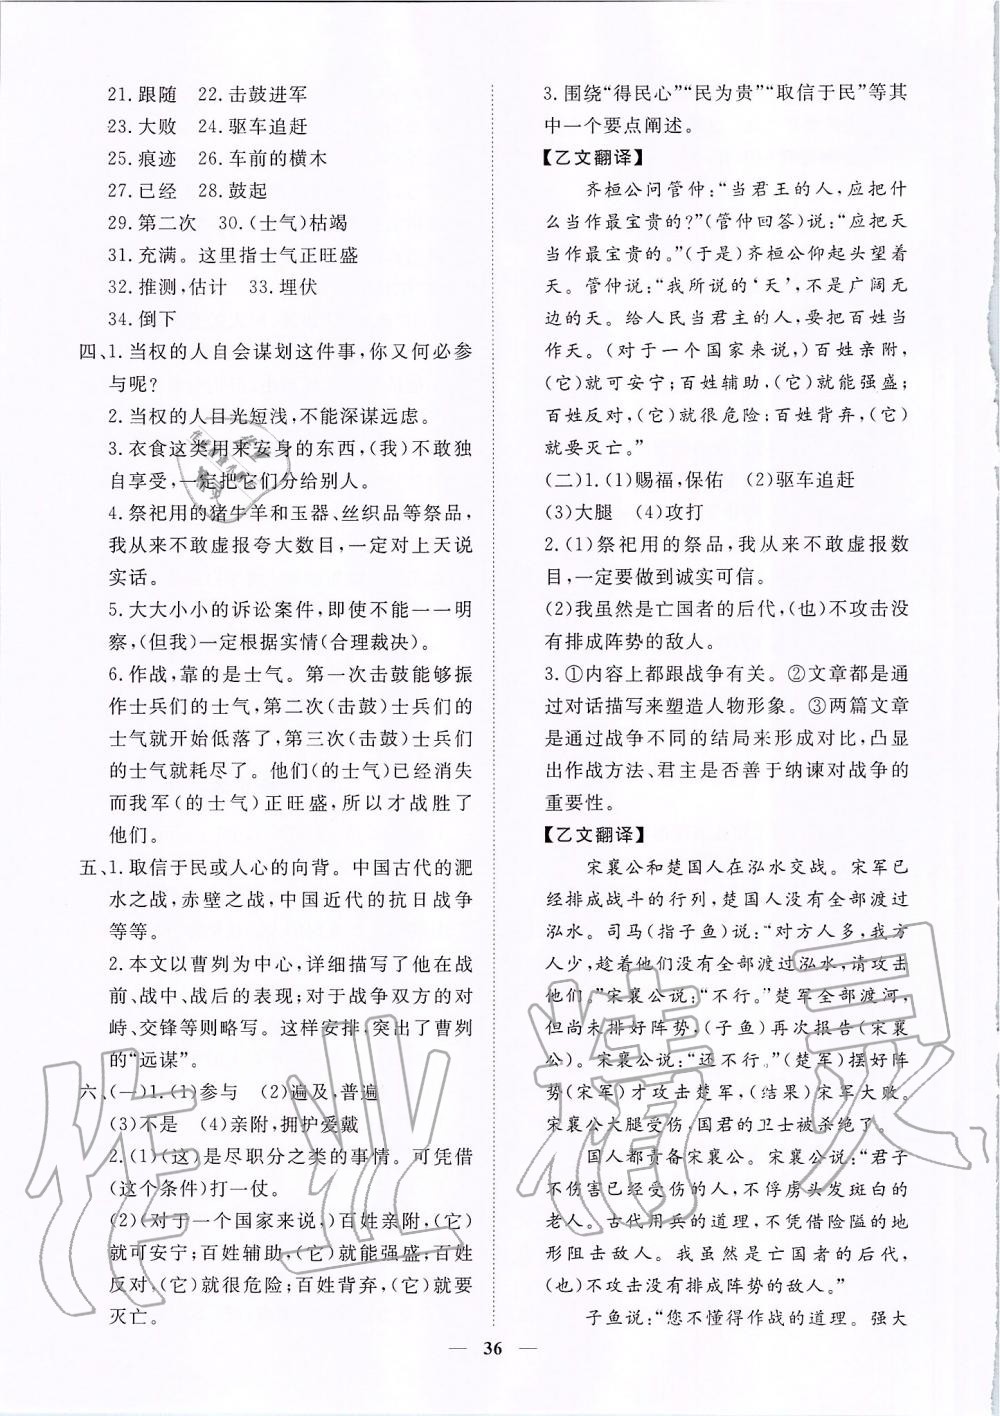 21.跟随　22.击鼓进军
23.大败　24.驱车追赶
25.痕迹　26.车前的横木
27.已经　28.鼓起
29.第二次　30.(士气)枯竭
31.充满。这里指士气正旺盛
32.推测,估计　33.埋伏
34.倒下
四、1.当权的人自会谋划这件事,你又何必参
与呢?
2.当权的人目光短浅,不能深谋远虑。
3.衣食这类用来安身的东西,(我)不敢独
自享受,一定把它们分给别人。
4.祭祀用的猪牛羊和玉器、丝织品等祭品,
我从来不敢虚报夸大数目,一定对上天说
实话。
5.大大小小的诉讼案件,即使不能一一明
察,(但我)一定根据实情(合理裁决)。
6.作战,靠的是士气。第一次击鼓能够振
作士兵们的士气,第二次(击鼓)士兵们的
士气就开始低落了,第三次(击鼓)士兵们
的士气就耗尽了。他们(的士气)已经消失
而我军(的士气)正旺盛,所以才战胜了
他们。
五、1.取信于民或人心的向背。中国古代的淝
水之战,赤壁之战,中国近代的抗日战争
等等。
2.本文以曹刿为中心,详细描写了他在战
前、战中、战后的表现;对于战争双方的对
峙、交锋等则略写。这样安排,突出了曹刿
的“远谋”。
六、(一)1.(1)参与　(2)遍及,普遍
(3)不是　(4)亲附,拥护爱戴
2.(1)(这)是尽职分之类的事情。可凭借
(这个条件)打一仗。
(2)(对于一个国家来说,)百姓亲附,(它)
就可安宁;百姓辅助,(它)就能强盛;百姓
反对,(它)就很危险;百姓背弃,(它)就要
灭亡。
3.围绕“得民心”“民为贵”“取信于民”等其
中一个要点阐述。
【乙文翻译】
齐桓公问管仲:“当君王的人,应把什
么当作最宝贵的?”(管仲回答)说:“应把天
当作最宝贵的。”(于是)齐桓公仰起头望着
天。管仲说:“我所说的‘天’,不是广阔无
边的天。给人民当君主的人,要把百姓当
作天。(对于一个国家来说,)百姓亲附,
(它)就可安宁;百姓辅助,(它)就能强盛;
百姓反对,(它)就很危险;百姓背弃,(它)
就要灭亡。”
(二)1.(1)赐福,保佑　(2)驱车追赶
(3)大腿　(4)攻打
2.(1)祭祀用的祭品,我从来不敢虚报数
目,一定要做到诚实可信。
(2)我虽然是亡国者的后代,(也)不攻击没
有排成阵势的敌人。
3.①内容上都跟战争有关。②文章都是通
过对话描写来塑造人物形象。③两篇文章
是通过战争不同的结局来形成对比,凸显
出作战方法、君主是否善于纳谏对战争的
重要性。
【乙文翻译】
宋襄公和楚国人在泓水交战。宋军已
经排成战斗的行列,楚国人没有全部渡过
泓水。司马(指子鱼)说:“对方人多,我方
人少,趁着他们没有全部渡过泓水,请攻击
他们。”宋襄公说:“不行。”楚军全部渡河,
但尚未排好阵势,(子鱼)再次报告(宋襄
公)。宋襄公说:“还不行。”(楚军)摆好阵
势(宋军)才攻击楚军,(结果)宋军大败。
宋襄公大腿受伤,国君的卫士被杀绝了。
国人都责备宋襄公。宋襄公说:“君子
不伤害已经受伤的人,不俘虏头发斑白的
老人。古代用兵的道理,不凭借险隘的地
形阻击敌人。我虽然是亡国者的后代,
(也)不攻击没有排成阵势的敌人。”
子鱼说:“您不懂得作战的道理。强大
— 36 —
作业精灵